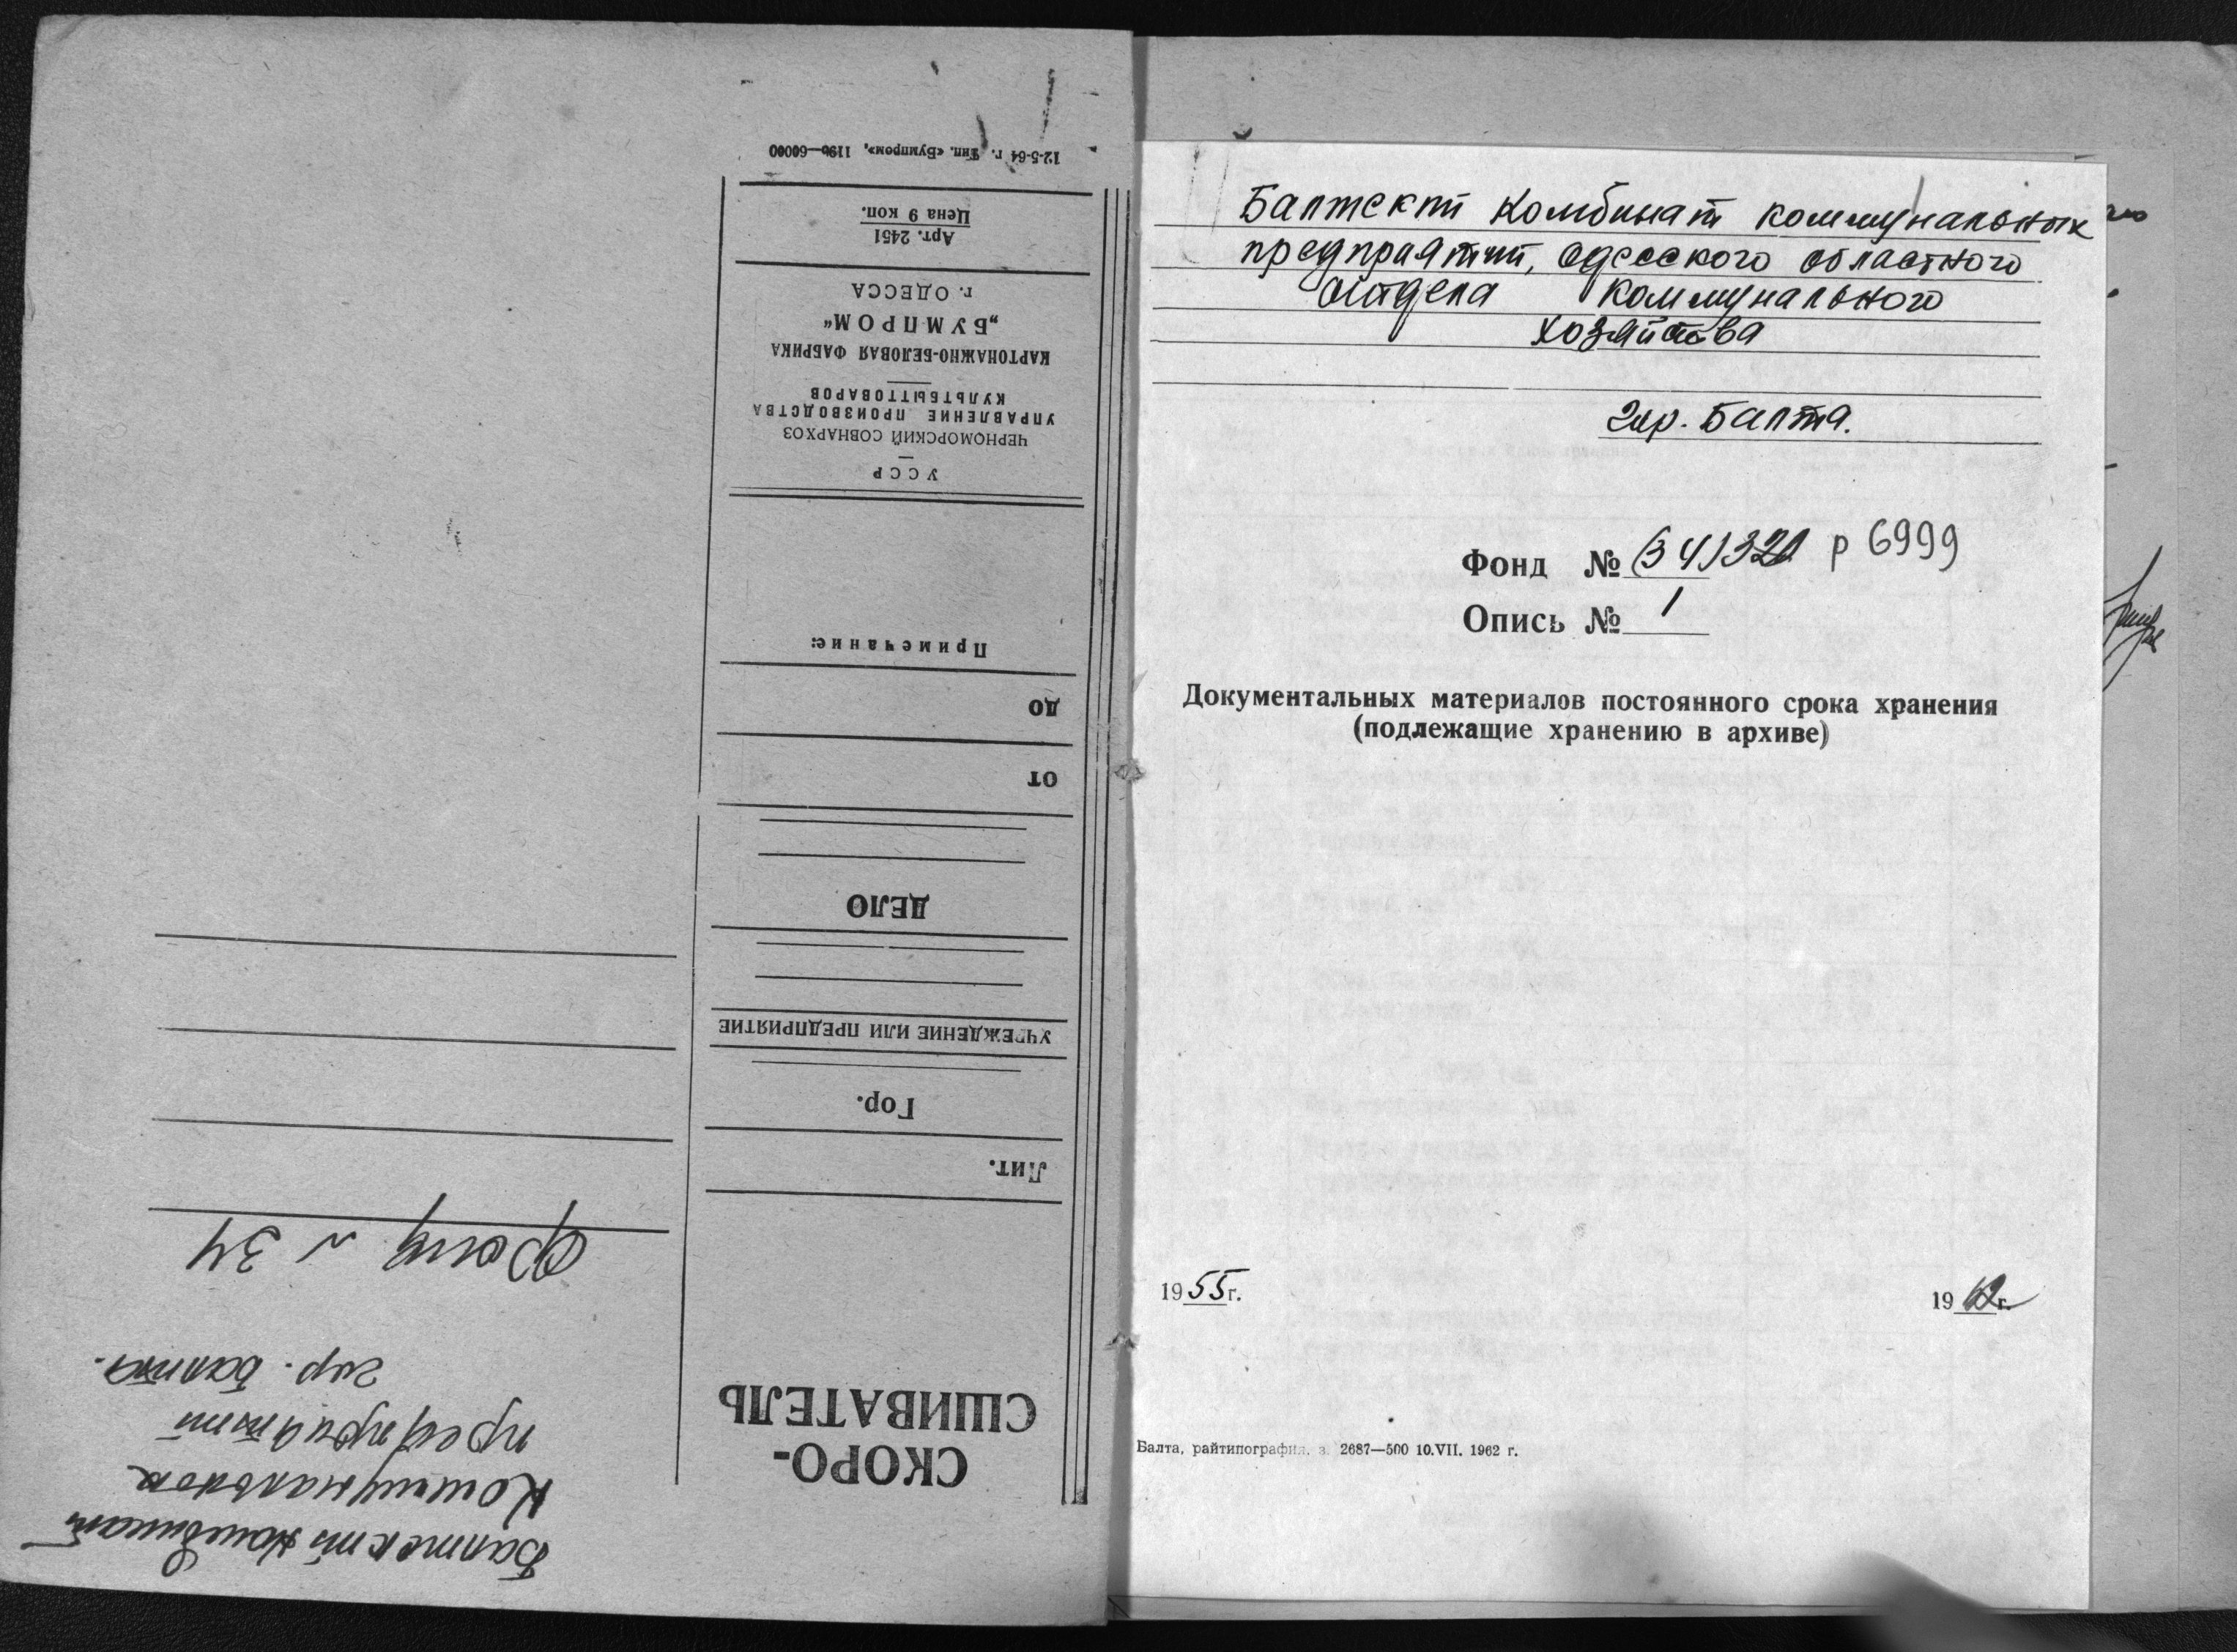 Балтский комбинат
Коммунальных
предприятий
гор. Балта.
Фонд № 34
СКОРО-
СШИВАТЕЛЬ
Лит.
Гор.
УЧРЕЖДЕНИЕ ИЛИ ПРЕДПРИЯТИЕ
ДЕЛО
ОТ
ДО
Примечание:
УССР
ЧЕРНОМОРСКИЙ СОВНАРХОЗ
УПРАВЛЕНИЕ ПРОИЗВОДСТВА
КУЛЬТБЫТТОВАРОВ
КАРТОНАЖНО-БЕЛОВАЯ ФАБРИКА
„БУМПРОМ“
г. ОДЕССА
Арт. 2451
Цена 9 коп.
12-5-64 г. Тип. «Бумпром», 1196—60000
Балтский Комбинат коммунальных
предприятий, Одесского областного
отдела коммунального
хозяйства
гор. Балта.
Фонд № (34) 321 р 6999
Опись № 1
Документальных материалов постоянного срока хранения
(подлежащие хранению в архиве)
1955 г. 1962 г.
Балта, райтипография. з. 2687—500 10.VII. 1962 г.